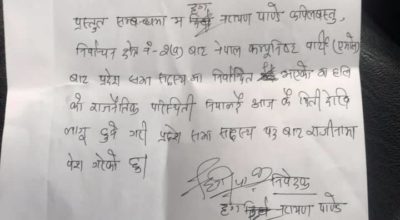 प्रस्तुत सम्बन्धमा म दृग नारायण पाण्डे कपिलवस्तु,
निर्वाचन क्षेत्र नं-२(ख) बाट नेपाल कम्युनिष्ट पार्टी (एमाले)
बाट प्रदेश सभा सदस्यमा निर्वाचित भएको छ हाल
को राजनैतिक परिस्थिती नियाल्दै आज कै मिती देखि
लागु हुने गरी प्रदेश सभा सदस्य पद बाट राजीनामा
पेश गरेको छु।
निवेदक
दृग नारायण पाण्डे